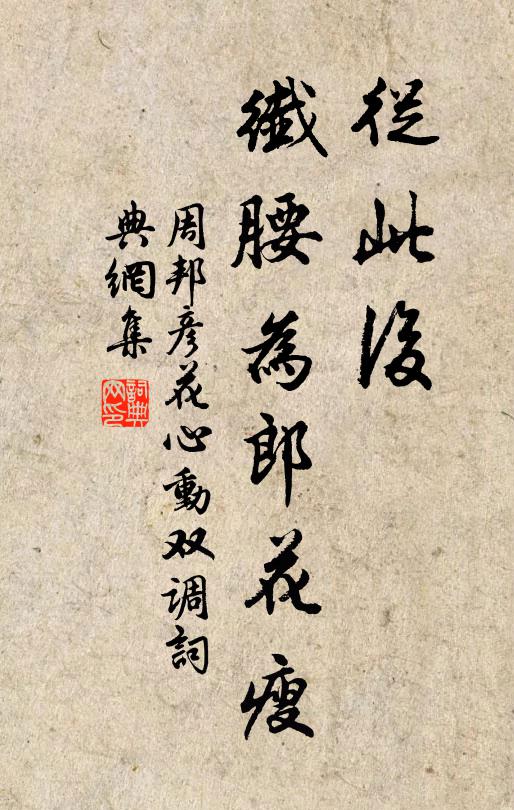 從此後
纖腰為郎花瘦
周邦彥花心動双调詞
典網集
詞典网印